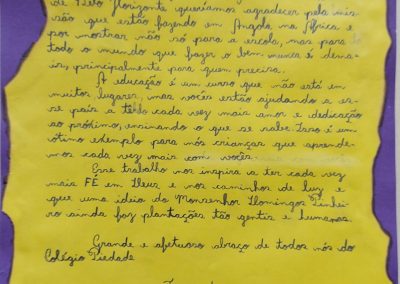 de Belo Horizonte queríamos agradecer pela mis-
são que estão fazendo em Angola na África e
por mostrar não só para a escola, mas para
todo o mundo que fazer o bem nunca é dema-
is, principalmente para quem precisa.
A educação é um curso que não está em
muitos lugares, mas vocês estão ajudando a es-
se país a tê-lo cada vez mais amor e dedicação
ao próximo, ensinando o que se sabe. Isso é um
ótimo exemplo para nós crianças que aprende-
mos cada vez mais com vocês.
Esse trabalho nos inspira a ter cada vez
mais FÉ em Deus e nos caminhos de luz e
que uma ideia do Monsenhor Domingos Pinhei-
ro ainda faz plantações tão gentis e humanas.
Grande e afetuoso abraço de todos nós do
Colégio Piedade